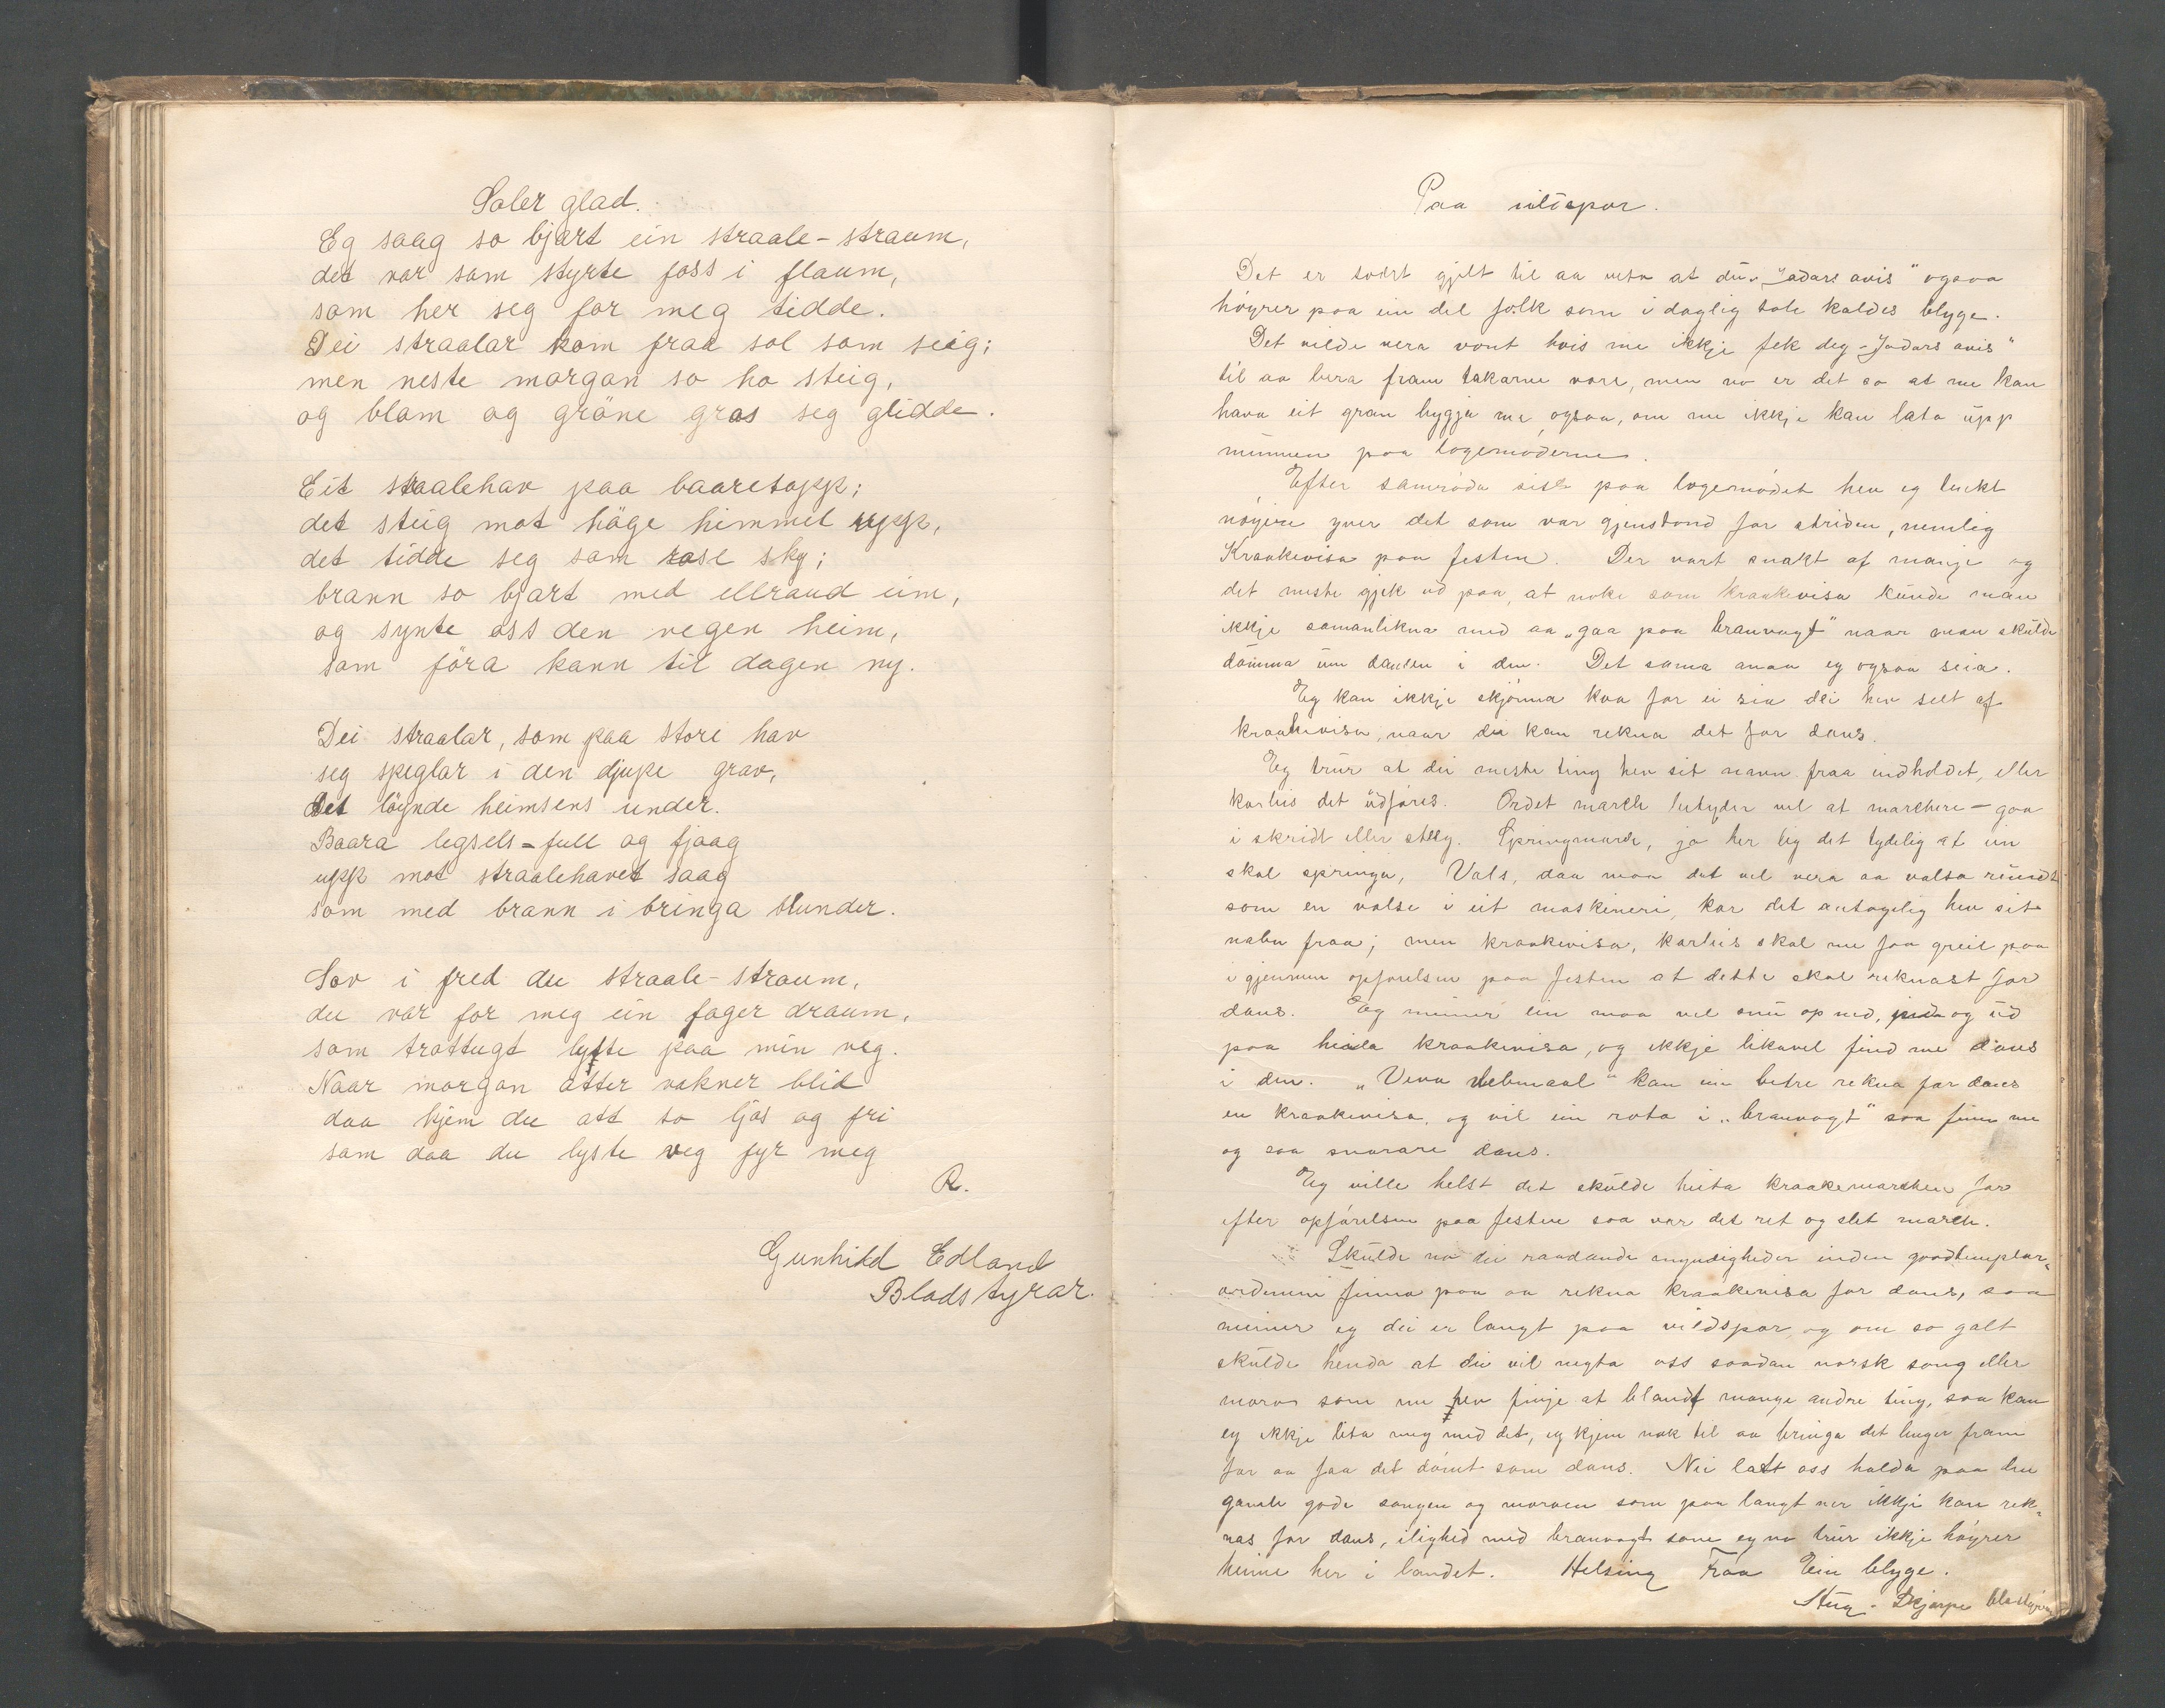 Soler glad.
Eg saag so bjart ein straale-straum,
det var som styrte foss i flaum,
som her seg for meg tidde.
Dei straalar kom fraa sol som seig;
men neste morgon so ho steig,
og blom og gröne gras seg glidde.
Eit straalehav paa baaretopp;
det steig mot höge himmel upp,
det tidde seg som rose sky;
brann so bjart med ellraud eim,
og synte oss den vegen heim,
som föra kann til dagen ny.
Dei straalar, som paa store hav
seg speglar i den djupe grav,
det löynde heimsens under.
Baara legsels-full og fjaag
upp mot straalehavet saag
som med brann i bringa stunder.
Sov i fred du straale-straum,
du var for meg ein fager draum,
som trottugt lyste paa min veg.
Naar morgon atter vakner blid
daa kjem du att so ljos og fri
som daa du lyste veg fyr meg
R.
Gunhild Edland
Bladstyrar.
Paa vildspor.
Det er svært gjilt til aa veta at du „Jadars avis" ogsaa
höyrer paa ein del folk som i daglig tale kaldes blyge.
Det vilde vera vont hvis me ikkje fek deg „Jadars avis"
til aa bera fram takarne vore, men no er det so at me kan
hava eit gran hyggja me ogsaa, om me ikkje kan lata upp
munnen paa logemöderne.
Efter samröda sist paa logemödet hev eg tenkt
nöyere yver det som var gjenstand for striden, nemlig
Kraakevisa paa festen. Der vart snakt af mange og
det meste gjek ud paa, at noke som kraakevisa kunde man
ikkje samanlikna med aa „gaa paa branvagt" naar man skulde
dömma um dansen i den. Det sama maa eg ogsaa seia.
Eg kan ikkje skjönna kva for ei sia dei hev sett af
kraakevisa, naar dei kan rekna det for dans.
Eg trur at dei meste ting hev sit navn fraa indholdet, eller
korleis det udföres. Ordet march betyder vel at marchere – gaa
i skridt eller steg. Springmarch, ja her lig det tydelig at ein
skal springa, Vals, daa maa det vel vera aa valsa rundt
som en valse i eit maskineri, kor det antagelig hev sit
nabn fraa; men kraakevisa, korleis skal me faa greit paa
i gjennum opförelsen paa festen at dette skal reknast for
dans. Eg meiner ein maa vel snu op ned, ind og ud
paa heila kraakevisa, og ikkje likavel find me dans
i den. „Veva vebmaal" kan ein betre rekna for dans
en kraakevisa, og vil ein rota i „branvagt" saa finn me
og saa snarare dans.
Eg ville helst det skulde heita kraakemarchen for
efter opförelsen paa festen saa var det ret og slet march.
Skulde no dei raadande myndigheder inden goodtemplar-
ordenen finna paa aa rekna kraakevisa for dans, saa
meiner eg dei er langt paa vildspor, og om so galt
skulde henda at dei vil negta oss saadan norsk song eller
moro som me hev finje at blandt mange andre ting, saa kan
eg ikkje lita meg med det, eg kjem nok til aa bringa det lenger fram
for aa faa det dömt som dans. Nei latt oss halda paa den
gamle gode songen og moroen som paa langt ner ikkje kan rek-
nas for dans, ilighed med branvagt som eg no trur ikkje höyrer
heime her i landet. Helsing Fraa Ein blyge.
Skjærpe bladstyrer